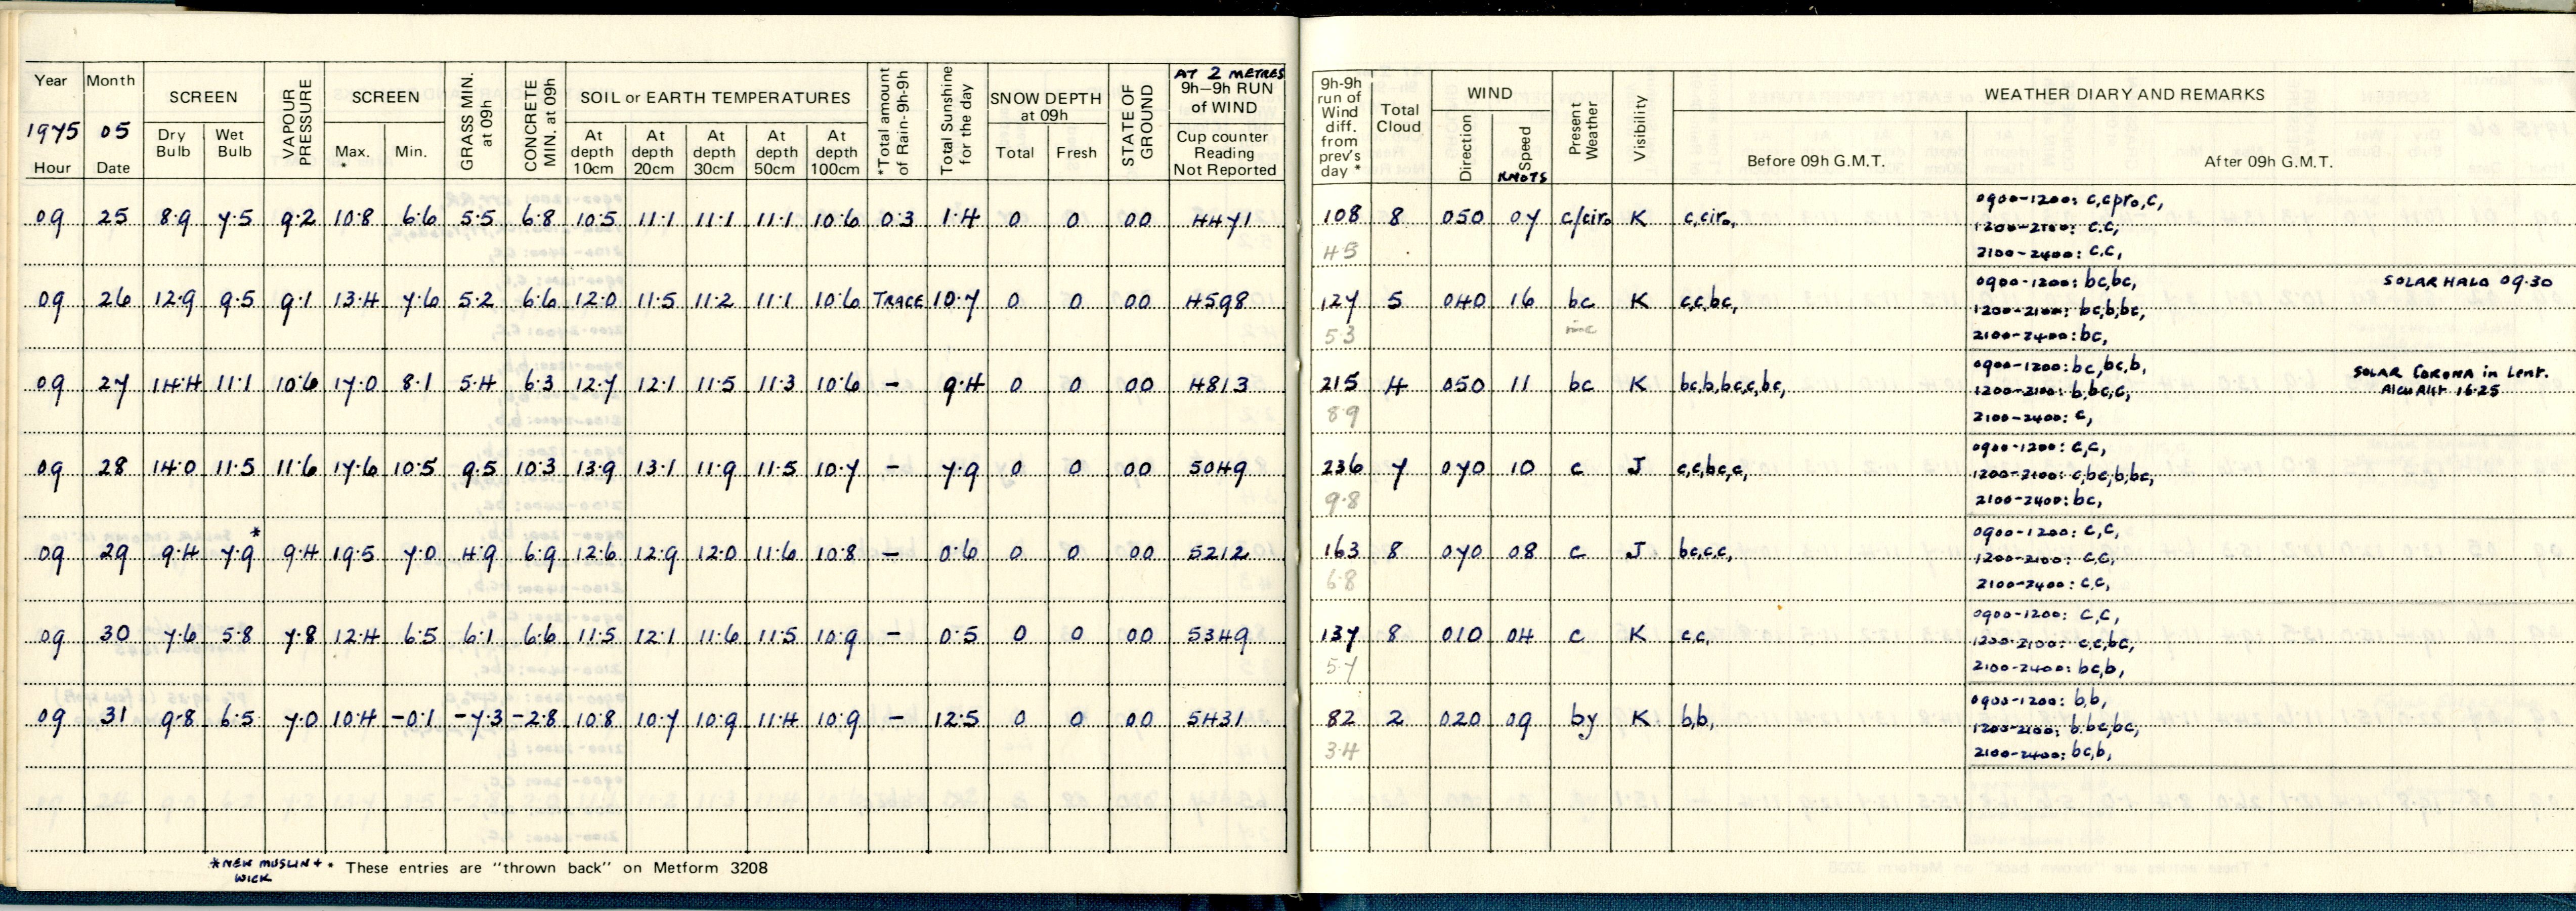 AT 2 METRES
Year Month SCREEN VAPOUR PRESSURE SCREEN GRASS MIN. at 09h CONCRETE MIN. at 09h SOIL or EARTH TEMPERATURES *Total amount of Rain-9h-9h Total Sunshine for the day SNOW DEPTH at 09h STATE OF GROUND 9h—9h RUN of WIND 9h-9h run of Wind diff. from prev's day * Total Cloud WIND Present Weather Visibility WEATHER DIARY AND REMARKS
1975 05 Dry Bulb Wet Bulb Max. * Min. At depth 10cm At depth 20cm At depth 30cm At depth 50cm At depth 100cm Total Fresh Cup counter Reading Not Reported Direction Speed KNOTS Before 09h G.M.T. After 09h G.M.T.
Hour Date
0900-1200: c,cpro,c,
09 25 8·9 7·5 9·2 10·8 6·6 5·5 6·8 10·5 11·1 11·1 11·1 10·6 0·3 1·4 0 0 00 4471 108 8 050 07 c/ciro K c,ciro,
1200-2100: c.c,
45 2100-2400: c.c,
0900-1200: bc,bc, SOLAR HALO 09·30
09 26 12·9 9·5 9·1 13·4 7·6 5·2 6·6 12·0 11·5 11·2 11·1 10·6 TRACE 10·7 0 0 00 4598 127 5 040 16 bc K c,c,bc,
1200-2100: bc,b,bc,
53 2100-2400: bc,
0900-1200: bc,bc,b, SOLAR CORONA in Lent.
09 27 14·4 11·1 10·6 17·0 8·1 5·4 6·3 12·7 12·1 11·5 11·3 10·6 – 9·4 0 0 00 4813 215 4 050 11 bc K bc,b,bc,c,bc,
1200-2100: b,bc,c, 16·25
8·9 2100-2400: c,
0900-1200: c,c,
09 28 14·0 11·5 11·6 17·6 10·5 9·5 10·3 13·9 13·1 11·9 11·5 10·7 – 7·9 0 0 00 5049 236 7 070 10 c J c,c,bc,c,
1200-2100: c,bc,b,bc,
9·8 2100-2400: bc,
0900-1200: c,c,
09 29 9·4 7·9 * 9·4 19·5 7·0 4·9 6·9 12·6 12·9 12·0 11·6 10·8 – 0·6 0 0 00 5212 163 8 070 08 c J bc,c,c,
1200-2100: c,c,
6·8 2100-2400: c,c,
0900-1200: c,c,
09 30 7·6 5·8 7·8 12·4 6·5 6·1 6·6 11·5 12·1 11·6 11·5 10·9 – 0·5 0 0 00 5349 137 8 010 04 c K c,c,
1200-2100: c,c,bc,
5·7 2100-2400: bc,b,
0900-1200: b,b,
09 31 9·8 6·5 7·0 10·4 -0·1 -7·3 -2·8 10·8 10·7 10·9 11·4 10·9 – 12·5 0 0 00 5431 82 2 020 09 by K b,b,
1200-2100: b,bc,bc,
3·4 2100-2400: bc,b,
*NEW MUSLIN + WICK * These entries are "thrown back" on Metform 3208